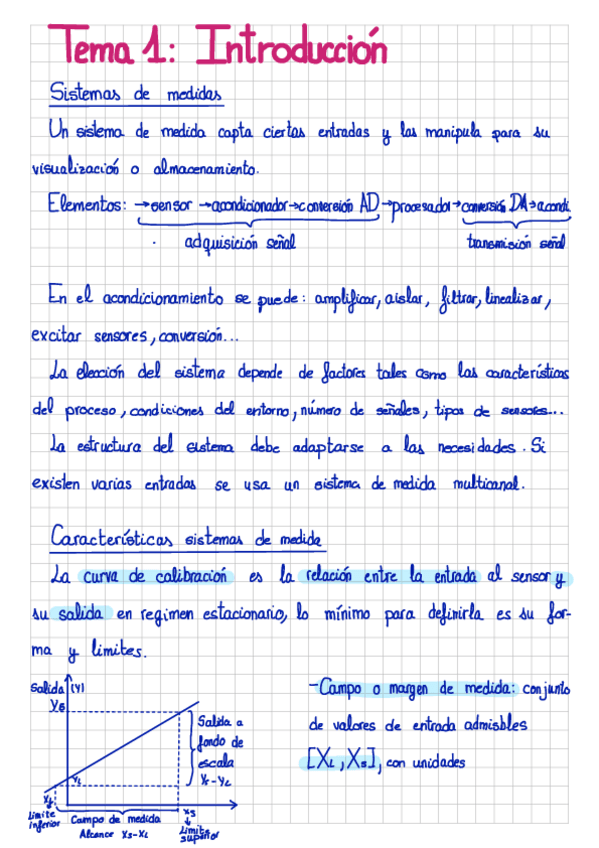 Tema 1: Introducción
Sistemas de medidas
Un sistema de medida capta ciertas entradas y las manipula para su
visualización o almacenamiento.
Elementos: →sensor →acondicionador→conversión AD→procesador→conversión DA→acondi
adquisición señal
transmisión señal
En el acondicionamiento se puede: amplificar, aislar, filtrar, linealizar,
excitar sensores, conversión...
La elección del sistema depende de factores tales como las características
del proceso, condiciones del entorno, número de señales, tipos de sensores...
La estructura del sistema debe adaptarse a las necesidades. Si
existen varias entradas se usa un sistema de medida multicanal.
Características sistemas de medida
La curva de calibración es la relación entre la entrada al sensor y
su salida en regimen estacionario, lo mínimo para definirla es su for-
ma y limites.
Salida (Y)
Ys
Salida a
fondo de
escala
Ys-YL
YL
XL
Xs
Limite
inferior
Campo de medida
Alcance Xs-XL
Limite
superior
-Campo o margen de medida: conjunto
de valores de entrada admisbles
[XL, Xs], con unidades